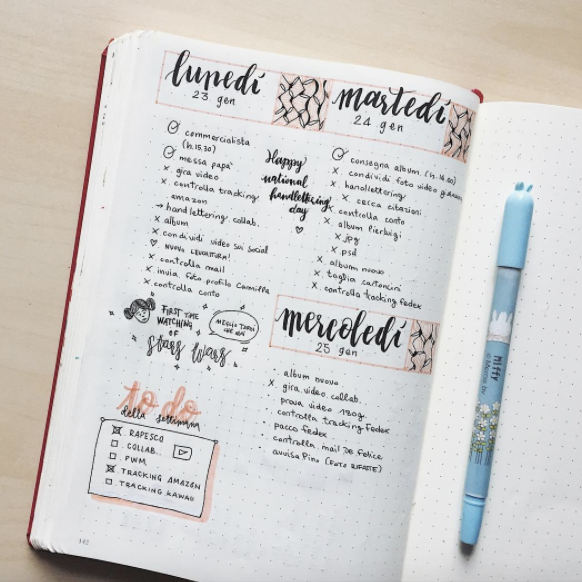 lunedí
23 gen
commercialista
(h.15.30)
messa papà
x gira video
x controlla tracking
amazon
→ handlettering collab.
x album
x condividi video sui social
♡ NUOVA LEVATURA!
x controlla mail
x invia foto profilo Camilla
x controlla conto
Happy
national
handlettering
day
♡
FIRST TIME
WATCHING
OF
STARS WARS
MEGLIO TARDI
CHE MAI
to do
della settimana
☒ RAPESCO
☐ COLLAB.
☐ PWM
☒ TRACKING AMAZON
☐ TRACKING KAWAII
142
martedí
24 gen
consegna album (h.16.00)
x condividi foto video
x handlettering
x cerca citazioni
x controlla conto
x album Pierluigi
x .jpg
x .psd
x album nuovo
x taglia cartoncini
x controlla tracking fedex
mercoledí
25 gen
· album nuovo
x gira video collab.
· prova video 180g.
· controlla tracking Fedex
· pacco fedex
· controlla mail De Felice
· avvisa Pino (FOTO RIFATTE)
Miffy